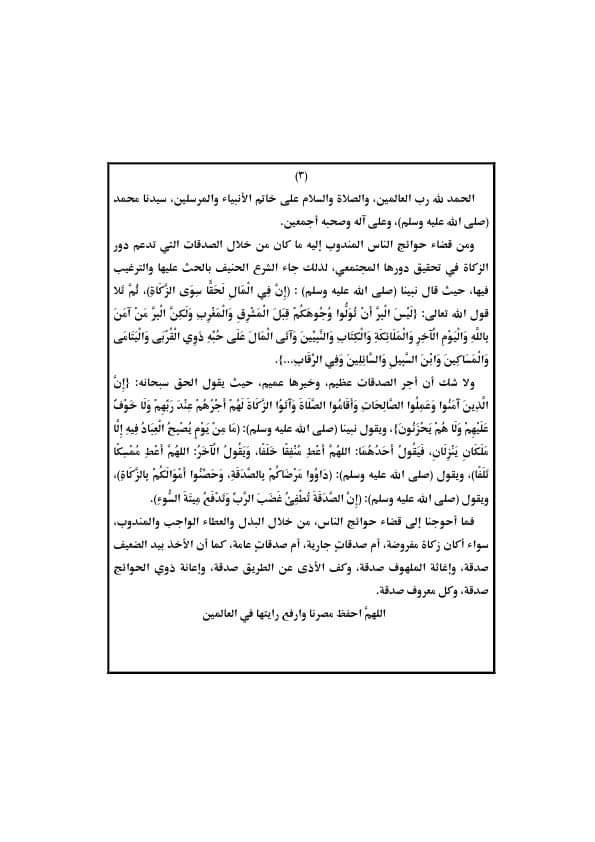 (٣)
الحمد لله رب العالمين، والصلاة والسلام على خاتم الأنبياء والمرسلين، سيدنا محمد
(صلى الله عليه وسلم)، وعلى آله وصحبه أجمعين.
ومن قضاء حوائج الناس المندوب إليه ما كان من خلال الصدقات التي تدعم دور
الزكاة في تحقيق دورها المجتمعي، لذلك جاء الشرع الحنيف بالحث عليها والترغيب
فيها، حيث قال نبينا (صلى الله عليه وسلم) : (إِنَّ فِي الْمَالِ لَحَقًّا سِوَى الزَّكَاةِ)، ثُمَّ تَلَا
قول الله تعالى: {لَيْسَ الْبِرَّ أَنْ تُوَلُّوا وُجُوهَكُمْ قِبَلَ الْمَشْرِقِ وَالْمَغْرِبِ وَلَكِنَّ الْبِرَّ مَنْ آمَنَ
بِاللَّهِ وَالْيَوْمِ الْآخِرِ وَالْمَلَائِكَةِ وَالْكِتَابِ وَالنَّبِيِّينَ وَآتَى الْمَالَ عَلَى حُبِّهِ ذَوِي الْقُرْبَى وَالْيَتَامَى
وَالْمَسَاكِينَ وَابْنَ السَّبِيلِ وَالسَّائِلِينَ وَفِي الرِّقَابِ...}.
ولا شك أن أجر الصدقات عظيم، وخيرها عميم، حيث يقول الحق سبحانه: {إِنَّ
الَّذِينَ آمَنُوا وَعَمِلُوا الصَّالِحَاتِ وَأَقَامُوا الصَّلَاةَ وَآتَوُا الزَّكَاةَ لَهُمْ أَجْرُهُمْ عِنْدَ رَبِّهِمْ وَلَا خَوْفٌ
عَلَيْهِمْ وَلَا هُمْ يَحْزَنُونَ}، ويقول نبينا (صلى الله عليه وسلم): (مَا مِنْ يَوْمٍ يُصْبِحُ الْعِبَادُ فِيهِ إِلَّا
مَلَكَانِ يَنْزِلَانِ، فَيَقُولُ أَحَدُهُمَا: اللهُمَّ أَعْطِ مُنْفِقًا خَلَفًا، وَيَقُولُ الْآخَرُ: اللهُمَّ أَعْطِ مُمْسِكًا
تَلَفًا)، ويقول (صلى الله عليه وسلم): (دَاوُوا مَرْضَاكُمْ بِالصَّدَقَةِ، وَحَصِّنُوا أَمْوَالَكُمْ بِالزَّكَاةِ)،
ويقول (صلى الله عليه وسلم): (إِنَّ الصَّدَقَةَ تُطْفِئُ غَضَبَ الرَّبِّ وَتَدْفَعُ مِيتَةَ السُّوءِ).
فما أحوجنا إلى قضاء حوائج الناس، من خلال البذل والعطاء الواجب والمندوب،
سواء أكان زكاة مفروضة، أم صدقاتٍ جارية، أم صدقاتٍ عامة، كما أن الأخذ بيد الضعيف
صدقة، وإغاثة الملهوف صدقة، وكف الأذى عن الطريق صدقة، وإعانة ذوي الحوائج
صدقة، وكل معروف صدقة.
اللهمَّ احفظ مصرنا وارفع رايتها في العالمين